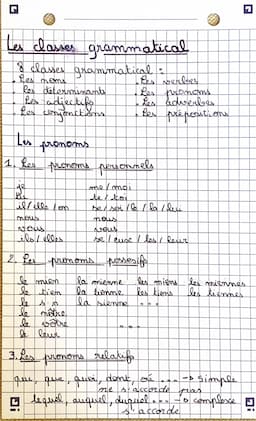 Les classes grammatical
8 classes grammatical :
. Les noms . Les verbes
. Les déterminants . Les pronoms
. Les adjectifs . Les adverbes
. Les conjonctions . Les prépositions
Les pronoms
1. Les pronoms personnels
je me / moi
tu te / toi
il / elle / on se / soi / le / la / leu
nous nous
vous vous
ils / elles se / eux / les / leur
2. Les pronoms possessifs
le mien la mienne les miens les miennes
le tien la tienne les tiens les tiennes
le sien la sienne ...
le nôtre
le vôtre ...
le leur
3. Les pronoms relatifs
qui, que, quoi, dont, où ... → simple
ne s'accorde pas
lequel, auquel, duquel ... → complexe
s'accorde